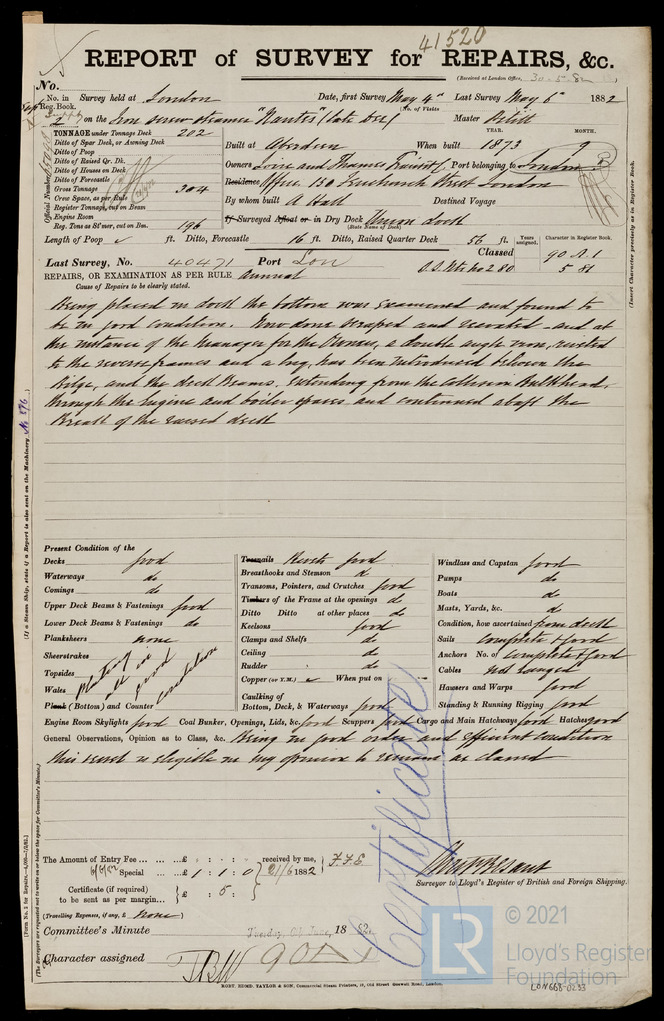 41520
REPORT of SURVEY for REPAIRS, &c.
(Received at London Office, 30.5.82)
No.
No. in Reg. Book. Survey held at London Date, first Survey May 4th Last Survey May 6th 1882
(No. of Visits)
2 on the Iron screw steamer "Nantes (late Dee) Master
TONNAGE under Tonnage Deck 202
Ditto of Spar Deck, or Awning Deck
Ditto of Poop
Ditto of Raised Qr. Dk.
Ditto of Houses on Deck
Ditto of Forecastle
Gross Tonnage 304
Crew Space, as per Rule
Register Tonnage, cut on Beam
Engine Room
Reg. Tons as St'mer, cut on Bm. 196
Official Number
YEAR. MONTH.
Built at Aberdeen When built 1873 9
Owners Loire and Thames Port belonging to London
Residence Office 150 Fenchurch Street London
By whom built A Hall Destined Voyage
If Surveyed Afloat or in Dry Dock Union Dock
(State Name of Dock)
Length of Poop ft. Ditto, Forecastle 16 ft. Ditto, Raised Quarter Deck 56 ft.
Years assigned. Character in Register Book.
(Insert Character precisely as in Register Book.
Last Survey, No. 40471 Port Lon Classed 90 A.1
REPAIRS, OR EXAMINATION AS PER RULE Annual 5 81
Cause of Repairs to be clearly stated.
Being placed in dock the bottom was examined and found to
be in good condition. Now done scraped and recoated - and at
the instance of the manager for the Owners, a double angle iron, riveted
to the reverse frames and a lug, has been introduced between the
Bilge, and the deck Beams. Extending from the Collision Bulkhead,
through the engine and boiler spaces and continued abaft the
Break of the raised deck
(If a Steam Ship, state if a Report is also sent on the Machinery No 876.)
Present Condition of the
Decks good
Waterways do
Comings do
Upper Deck Beams & Fastenings good
Lower Deck Beams & Fastenings do
Planksheers none
Sheerstrakes
Topsides
Wales
Plank (Bottom) and Counter
Plating all in good Condition
Treenails Rivets good
Breasthooks and Stemson do
Transoms, Pointers, and Crutches good
Timbers of the Frame at the openings do
Ditto Ditto at other places do
Keelsons good
Clamps and Shelfs do
Ceiling do
Rudder do
Copper (or Y.M.) When put on
Caulking of
Bottom, Deck, & Waterways good
Windlass and Capstan good
Pumps do
Boats do
Masts, Yards, &c. do
Condition, how ascertained from deck
Sails Complete & good
Anchors No. of Complete & good
Cables not ranged
Hawsers and Warps good
Standing & Running Rigging good
Engine Room Skylights good Coal Bunker, Openings, Lids, &c. good Scuppers good Cargo and Main Hatchways good Hatches good
General Observations, Opinion as to Class, &c. Being in good order and efficient condition
this vessel is eligible in my opinion to remain as classed
Certificate
The Amount of Entry Fee ... £ : : received by me,
6/6/82 Special ... £ 1 : 1 : 0 21/6 1882 F.F.E
Certificate (if required) to be sent as per margin... £ : 5 :
(Travelling Expenses, if any, £ none)
Surveyor to Lloyd's Register of British and Foreign Shipping.
Committee's Minute Tuesday, 6th June, 1882.
Character assigned 90A1
[Form No. 2 for Repairs.
(The Surveyors are requested not to write on or below the space for Committee's Minute.)
ROBT. EDMD. TAYLOR & SON, Commercial Steam Printers, 19, Old Street, Goswell Road, London.
LR
© 2021
Lloyd's Register
Foundation
LON668-0233